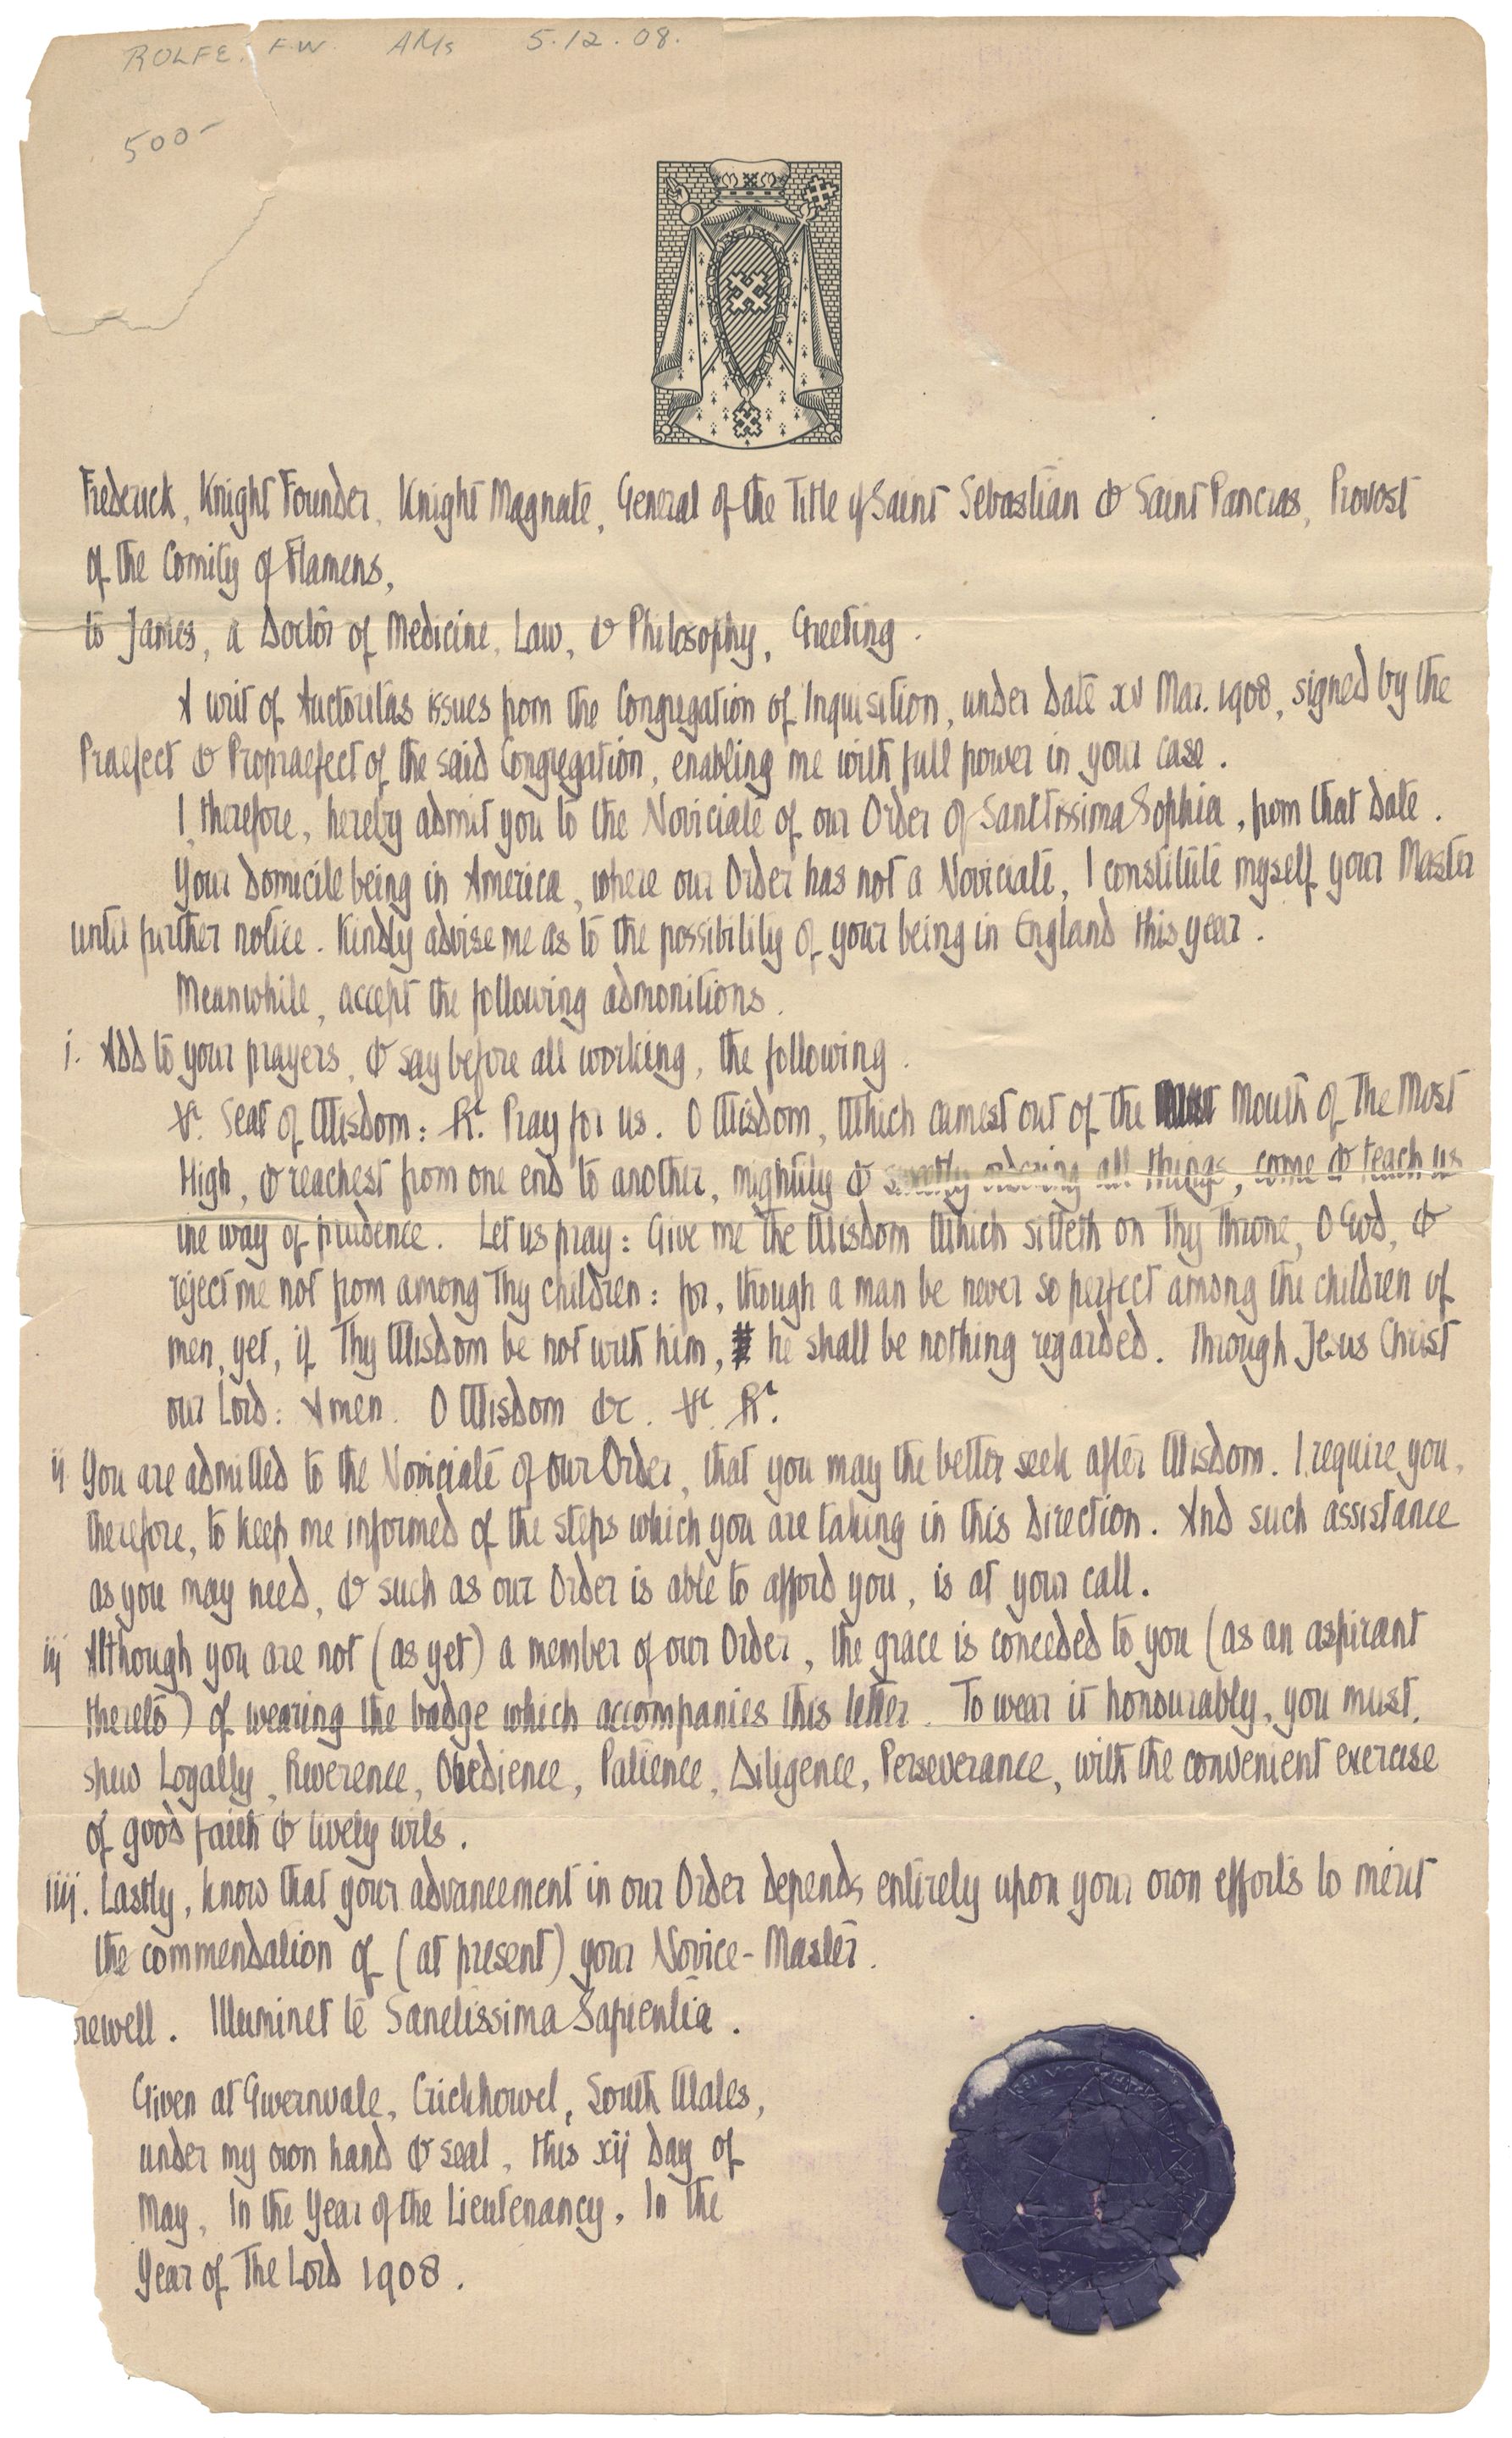 ROLFE. F.W. AMs 5.12.08.
500-
Frederick, Knight Founder, Knight Magnate, General of the Title of Saint Sebastian & Saint Pancras, Provost
of the Comity of Flamens,
to James, a Doctor of Medicine, Law, & Philosophy, Greeting.
A writ of Auctoritas issues from the Congregation of Inquisition, under date xv Mar. 1908, signed by the
Praefect & Propraefect of the said Congregation, enabling me with full power in your case.
I, therefore, hereby admit you to the Noviciate of our Order of Sanctissima Sophia, from that date.
Your domicile being in America, where our Order has not a Noviciate, I constitute myself your Master
until further notice. Kindly advise me as to the possibility of your being in England this year.
Meanwhile, accept the following admonitions.
j. Add to your prayers, & say before all working, the following.
V. Seat of Wisdom: R. Pray for us. O Wisdom, Which camest out of the Mouth of The Most
High, & reachest from one end to another, mightily & sweetly ordering all things, come & teach us
the way of prudence. Let us pray: Give me the Wisdom Which sitteth on Thy Throne, O God, &
reject me not from among Thy children: for, though a man be never so perfect among the children of
men, yet, if Thy Wisdom be not with him, he shall be nothing regarded. Through Jesus Christ
our Lord: Amen. O Wisdom &c. V. R.
ij You are admitted to the Noviciate of our Order, that you may the better seek after Wisdom. I require you,
therefore, to keep me informed of the steps which you are taking in this direction. And such assistance
as you may need, & such as our Order is able to afford you, is at your call.
iij Although you are not (as yet) a member of our Order, the grace is conceded to you (as an aspirant
thereto) of wearing the badge which accompanies this letter. To wear it honourably, you must,
shew Loyalty, Reverence, Obedience, Patience, Diligence, Perseverance, with the convenient exercise
of good faith & lively wits.
iiij. Lastly, know that your advancement in our Order depends entirely upon your own efforts to merit
the commendation of (at present) your Novice-Master.
rewell. Illuminet te Sanctissima Sapientia.
Given at Gwernvale, Crickhowel, South Wales,
under my own hand & seal, this xij day of
May, In the Year of the Lieutenancy, In the
Year of The Lord 1908.